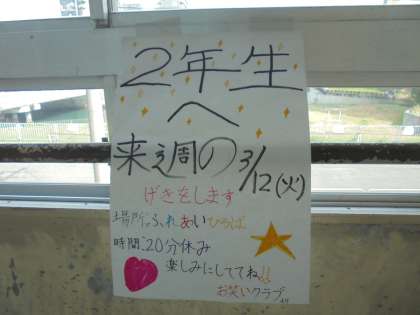 2年生
へ
来週の3/12(火)
げきをします
場所:ふれあいひろば
時間:20分休み
楽しみにしててね!!
お笑いクラブより